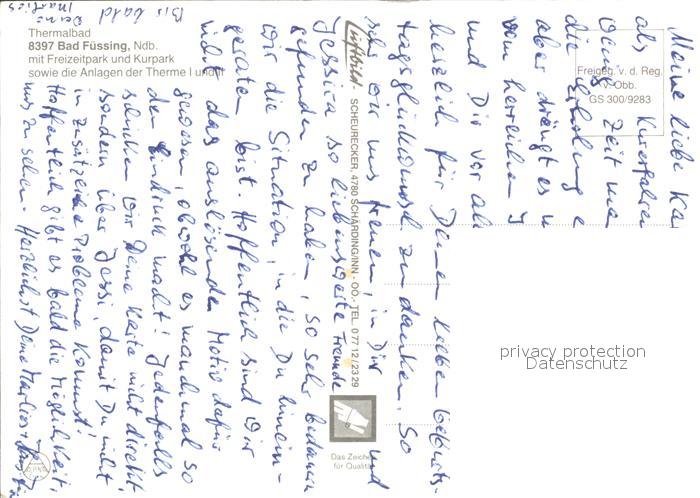 Thermalbad
8397 Bad Füssing, Ndb.
mit Freizeitpark und Kurpark
sowie die Anlagen der Therme I und
Freigeg. v. d. Reg.
v. Obb.
GS 300/9283
Luftbild
SCHEURECKER, 4780 SCHÄRDING/INN - OÖ. - TEL. 0 77 12 / 23 29
Das Zeichen
für Qualität
privacy protection
Datenschutz
Meine liebe Ka
als Kurerfahren
wenig Zeit man
die Erholung e
aber drängt es u
vom herrlichen
und Dir vor al
herzlich für Deinen lieben Geburts-
tagsglückwunsch zu danken. So
sehr wir uns freuen, in Dir und
Jessica so liebenswerte Freunde
gefunden zu haben, so sehr bedauern
wir die Situation, in die Du hinein-
geraten bist. Hoffentlich sind wir
nicht das auslösende Motiv dafür
gewesen, obwohl es manchmal so
den Eindruck macht! Jedenfalls
schicken wir Deine Karte nicht direkt
sondern über Jessi, damit Du nicht
in zusätzliche Probleme kommst!
Hoffentlich gibt es bald die Möglichkeit,
uns zu sehen. Herzlichst Deine Marlies +
Bis bald
Deine
Marlies